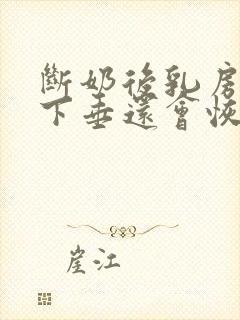 斷奶後乳房
下垂還會恢
崖江